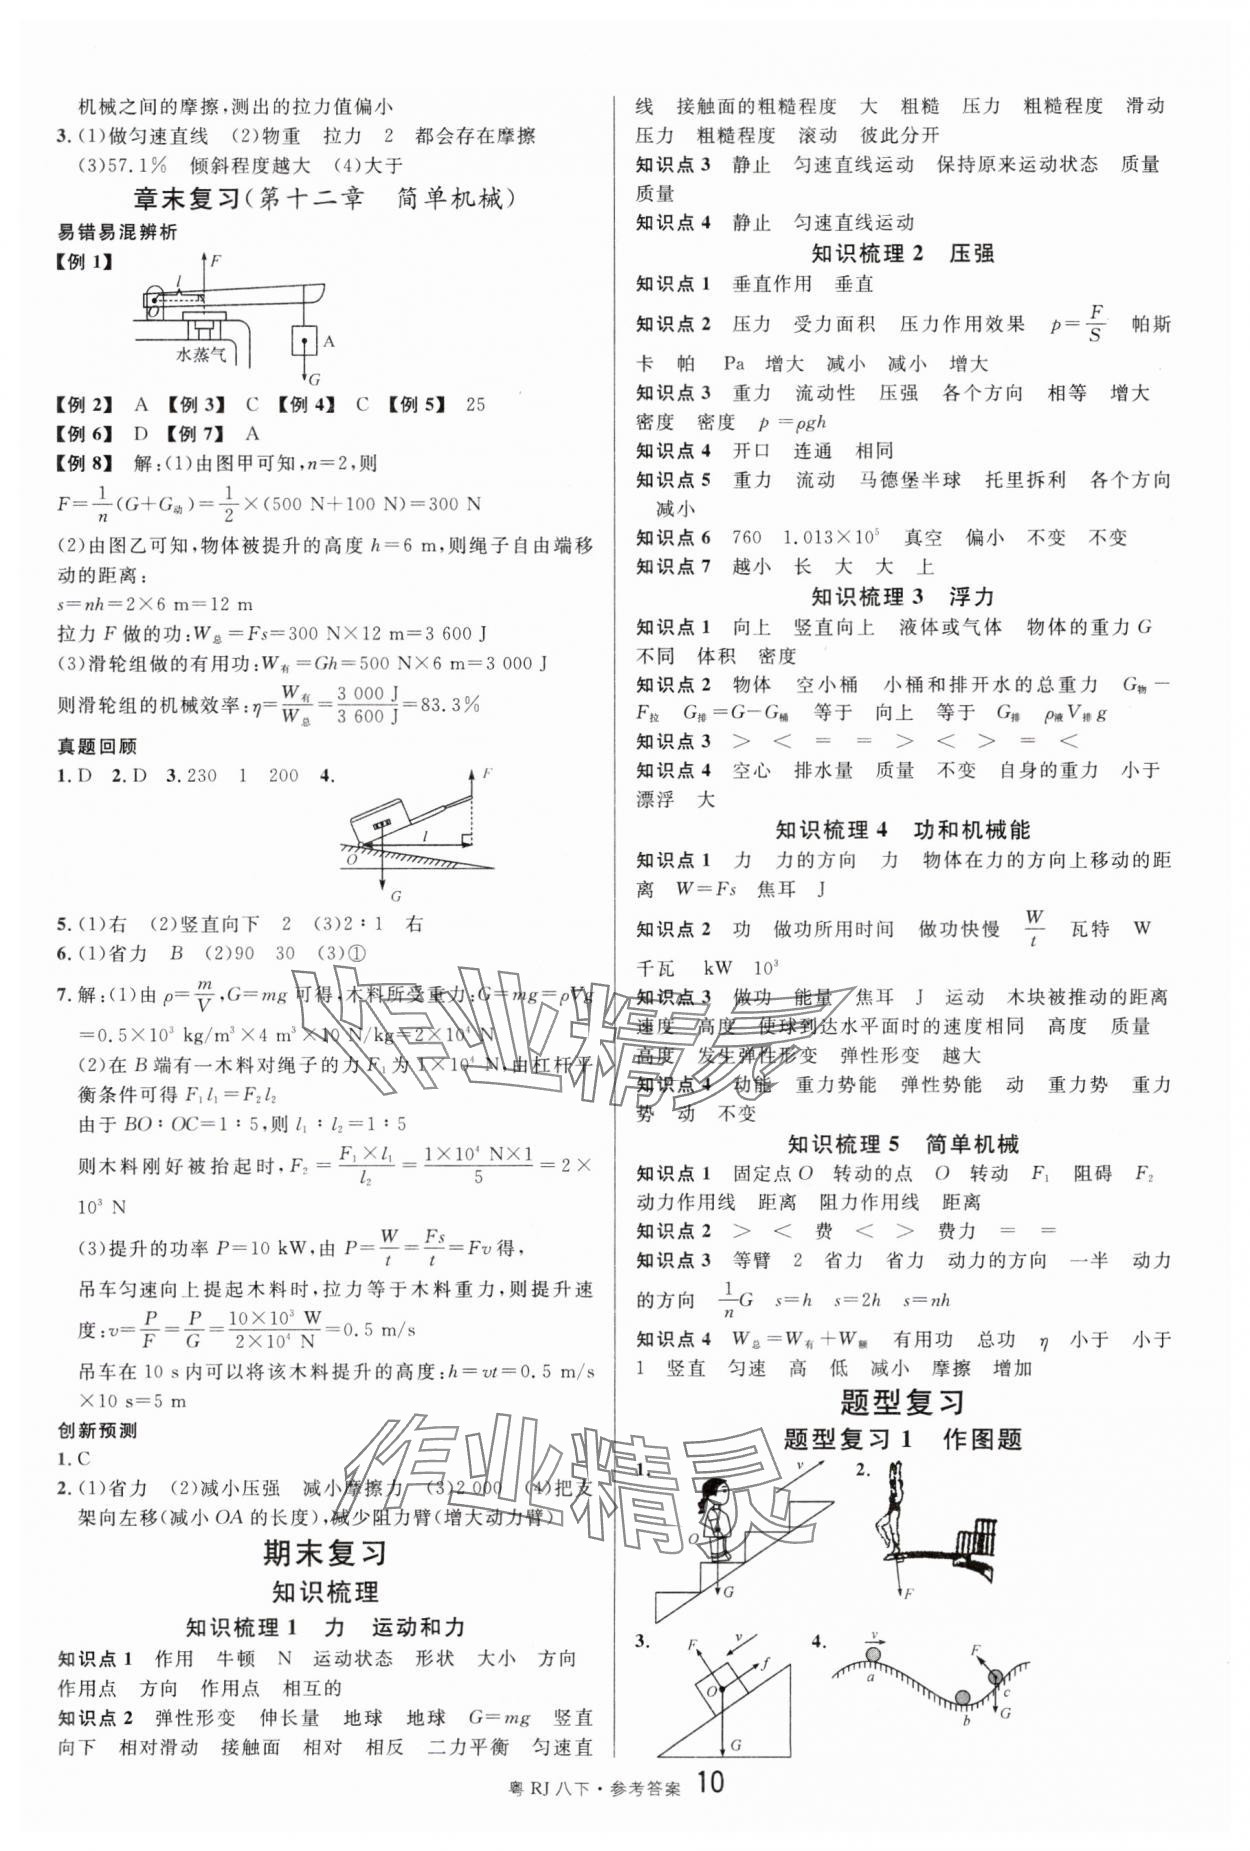 机械之间的摩擦,测出的拉力值偏小
3. (1)做匀速直线 (2)物重 拉力 2 都会存在摩擦
(3)57.1% 倾斜程度越大 (4)大于
章末复习(第十二章 简单机械)
易错易混辨析
【例1】
F
l
O
A
水蒸气
G
【例2】 A 【例3】 C 【例4】 C 【例5】 25
【例6】 D 【例7】 A
【例8】 解:(1)由图甲可知,n=2,则
F=1/n(G+G动)=1/2×(500 N+100 N)=300 N
(2)由图乙可知,物体被提升的高度 h=6 m,则绳子自由端移
动的距离:
s=nh=2×6 m=12 m
拉力 F 做的功:W总=Fs=300 N×12 m=3 600 J
(3)滑轮组做的有用功:W有=Gh=500 N×6 m=3 000 J
则滑轮组的机械效率:η=W有/W总=3 000 J/3 600 J=83.3%
真题回顾
1. D 2. D 3. 230 1 200 4.
F
l
O
G
5. (1)右 (2)竖直向下 2 (3)2∶1 右
6. (1)省力 B (2)90 30 (3)①
7. 解:(1)由 ρ=m/V,G=mg 可得,木料所受重力:G=mg=ρVg
=0.5×10³ kg/m³×4 m³×10 N/kg=2×10⁴ N
(2)在 B 端有一木料对绳子的力 F₁ 为 1×10⁴ N,由杠杆平
衡条件可得 F₁l₁=F₂l₂
由于 BO∶OC=1∶5,则 l₁∶l₂=1∶5
则木料刚好被抬起时,F₂=F₁×l₁/l₂=1×10⁴ N×1/5=2×
10³ N
(3)提升的功率 P=10 kW,由 P=W/t=Fs/t=Fv 得,
吊车匀速向上提起木料时,拉力等于木料重力,则提升速
度:v=P/F=P/G=10×10³ W/2×10⁴ N=0.5 m/s
吊车在 10 s 内可以将该木料提升的高度:h=vt=0.5 m/s
×10 s=5 m
创新预测
1. C
2. (1)省力 (2)减小压强 减小摩擦力 (3)2 000 (4)把支
架向左移(减小 OA 的长度),减少阻力臂(增大动力臂)
期末复习
知识梳理
知识梳理 1 力 运动和力
知识点 1 作用 牛顿 N 运动状态 形状 大小 方向
作用点 方向 作用点 相互的
知识点 2 弹性形变 伸长量 地球 地球 G=mg 竖直
向下 相对滑动 接触面 相对 相反 二力平衡 匀速直
线 接触面的粗糙程度 大 粗糙 压力 粗糙程度 滑动
压力 粗糙程度 滚动 彼此分开
知识点 3 静止 匀速直线运动 保持原来运动状态 质量
质量
知识点 4 静止 匀速直线运动
知识梳理 2 压强
知识点 1 垂直作用 垂直
知识点 2 压力 受力面积 压力作用效果 p=F/S 帕斯
卡 帕 Pa 增大 减小 减小 增大
知识点 3 重力 流动性 压强 各个方向 相等 增大
密度 密度 p=ρgh
知识点 4 开口 连通 相同
知识点 5 重力 流动 马德堡半球 托里拆利 各个方向
减小
知识点 6 760 1.013×10⁵ 真空 偏小 不变 不变
知识点 7 越小 长 大 大 上
知识梳理 3 浮力
知识点 1 向上 竖直向上 液体或气体 物体的重力 G
不同 体积 密度
知识点 2 物体 空小桶 小桶和排开水的总重力 G物－
F拉 G排=G－G桶 等于 向上 等于 G排 ρ液V排g
知识点 3 > < = = > < > = <
知识点 4 空心 排水量 质量 不变 自身的重力 小于
漂浮 大
知识梳理 4 功和机械能
知识点 1 力 力的方向 力 物体在力的方向上移动的距
离 W=Fs 焦耳 J
知识点 2 功 做功所用时间 做功快慢 W/t 瓦特 W
千瓦 kW 10³
知识点 3 做功 能量 焦耳 J 运动 木块被推动的距离
速度 高度 使球到达水平面时的速度相同 高度 质量
高度 发生弹性形变 弹性形变 越大
知识点 4 动能 重力势能 弹性势能 动 重力势 重力
势 动 不变
知识梳理 5 简单机械
知识点 1 固定点 O 转动的点 O 转动 F₁ 阻碍 F₂
动力作用线 距离 阻力作用线 距离
知识点 2 > < 费 < > 费力 = =
知识点 3 等臂 2 省力 省力 动力的方向 一半 动力
的方向 1/nG s=h s=2h s=nh
知识点 4 W总=W有+W额 有用功 总功 η 小于 小于
1 竖直 匀速 高 低 减小 摩擦 增加
题型复习
题型复习 1 作图题
1.
v
O
G
2.
F
3.
F
v
f
O
G
4.
v
a
b
F
c
G
作业精灵
作业精灵
粤 RJ 八下·参考答案 10